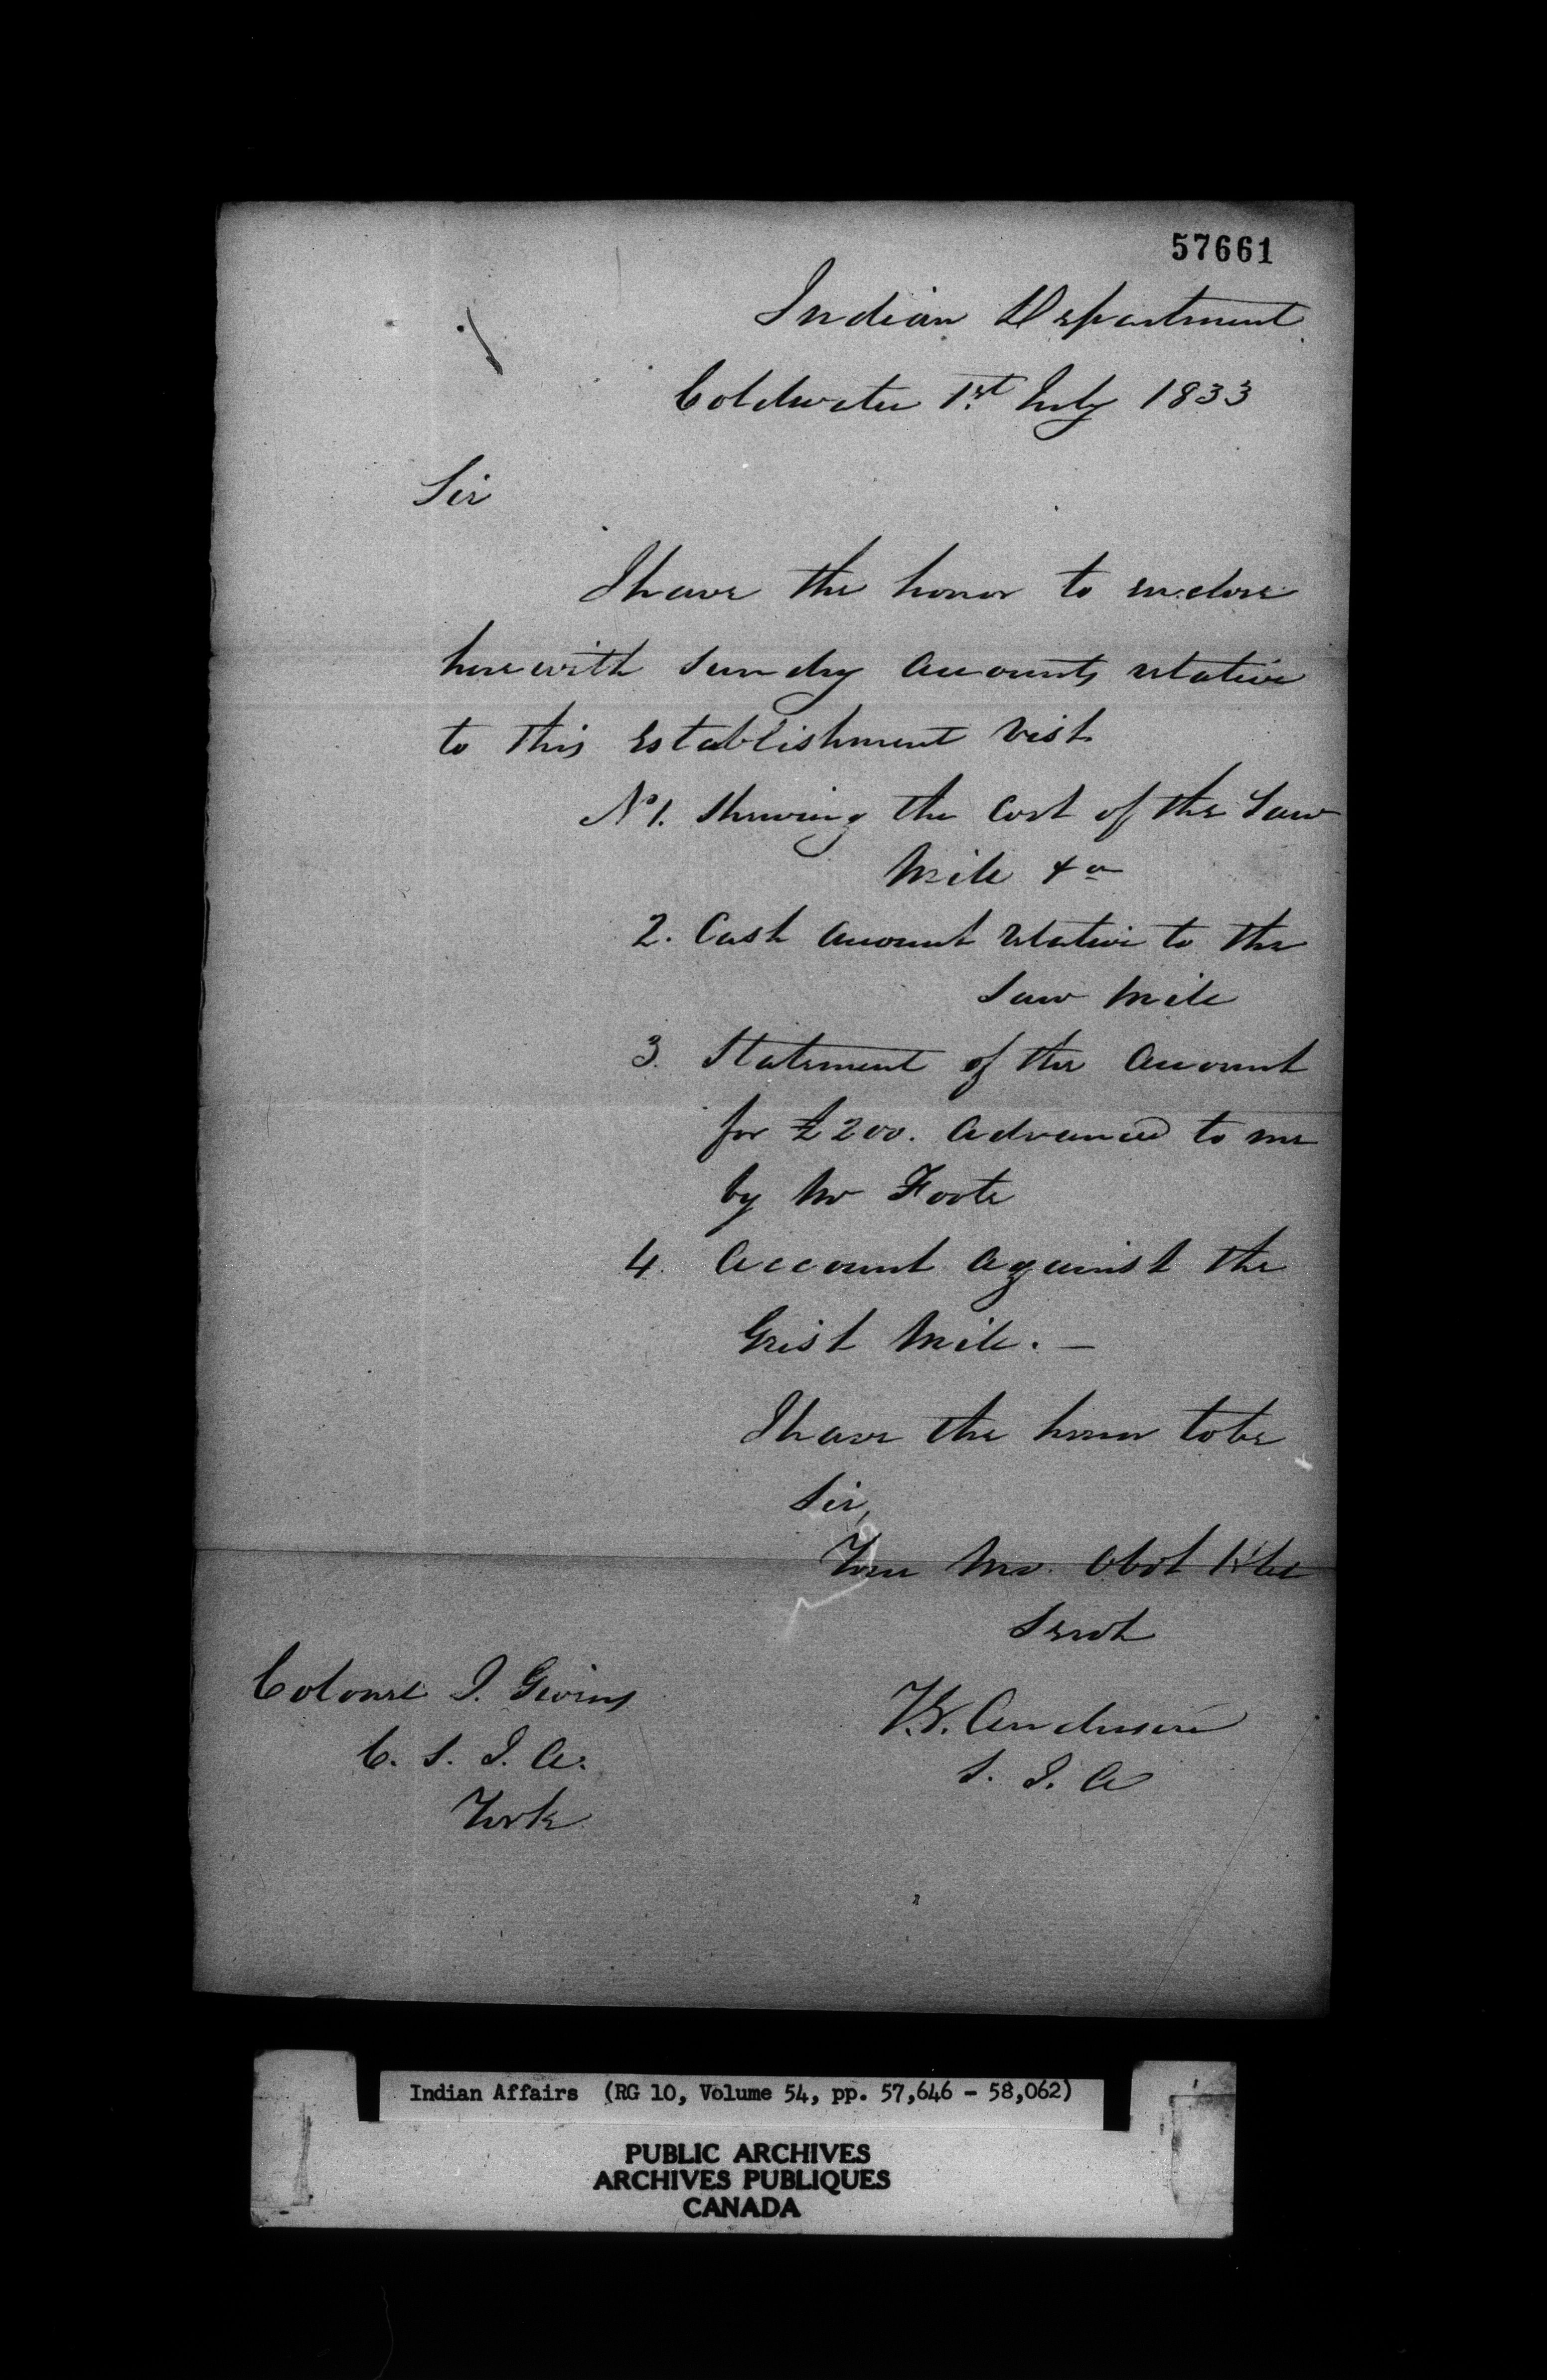 57661
Indian Department
Coldwater 1st July 1833
Sir
I have the honor to enclose
herewith sundry accounts relative
to this Establishment Vist
No 1. Shewing the Cost of the Saw
Mill &a
2. Cash account relative to the
Saw Mill
3. Statement of the Account
for £200. Advanced to me
by Mr Foote
4. Account against the
Grist Mill. —
I have the honor to be
Sir,
Your Mo. Obdt Hble
Servt
Colonel J. Givins
C. S. I. A.
York
T. G. Anderson
S. I. A
Indian Affairs (RG 10, Volume 54, pp. 57,646 - 58,062)
PUBLIC ARCHIVES
ARCHIVES PUBLIQUES
CANADA